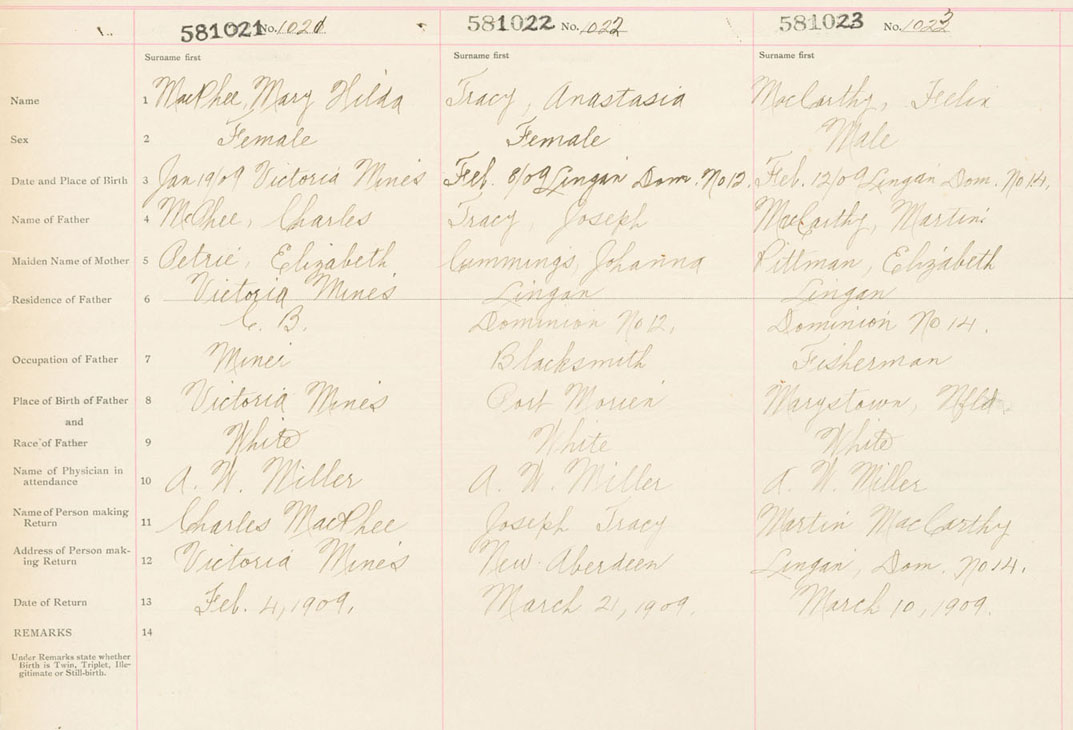 581021 No. 1021 581022 No. 1022 581023 No. 1023
Surname first Surname first Surname first
Name 1 MacPhee, Mary Hilda Tracy, Anastasia MacCarthy, Felix
Sex 2 Female Female Male
Date and Place of Birth 3 Jan 19/09 Victoria Mines Feb. 8/09 Lingan Dom. No 12. Feb. 12/09 Lingan Dom. No 14.
Name of Father 4 McPhee, Charles Tracy, Joseph MacCarthy, Martin
Maiden Name of Mother 5 Petrie, Elizabeth Cummings, Johanna Pittman, Elizabeth
Residence of Father 6 Victoria Mines Lingan Lingan
C. B. Dominion No 12. Dominion No 14.
Occupation of Father 7 Miner Blacksmith Fisherman
Place of Birth of Father 8 Victoria Mines Port Morien Marystown, Nfld.
and
Race of Father 9 White White White
Name of Physician in
attendance 10 A. W. Miller A. W. Miller A. W. Miller
Name of Person making
Return 11 Charles MacPhee Joseph Tracy Martin MacCarthy
Address of Person mak-
ing Return 12 Victoria Mines New Aberdeen Lingan, Dom. No 14.
Date of Return 13 Feb. 4, 1909. March 21, 1909. March 10, 1909.
REMARKS 14
Under Remarks state whether
Birth is Twin, Triplet, Ille-
gitimate or Still-birth.